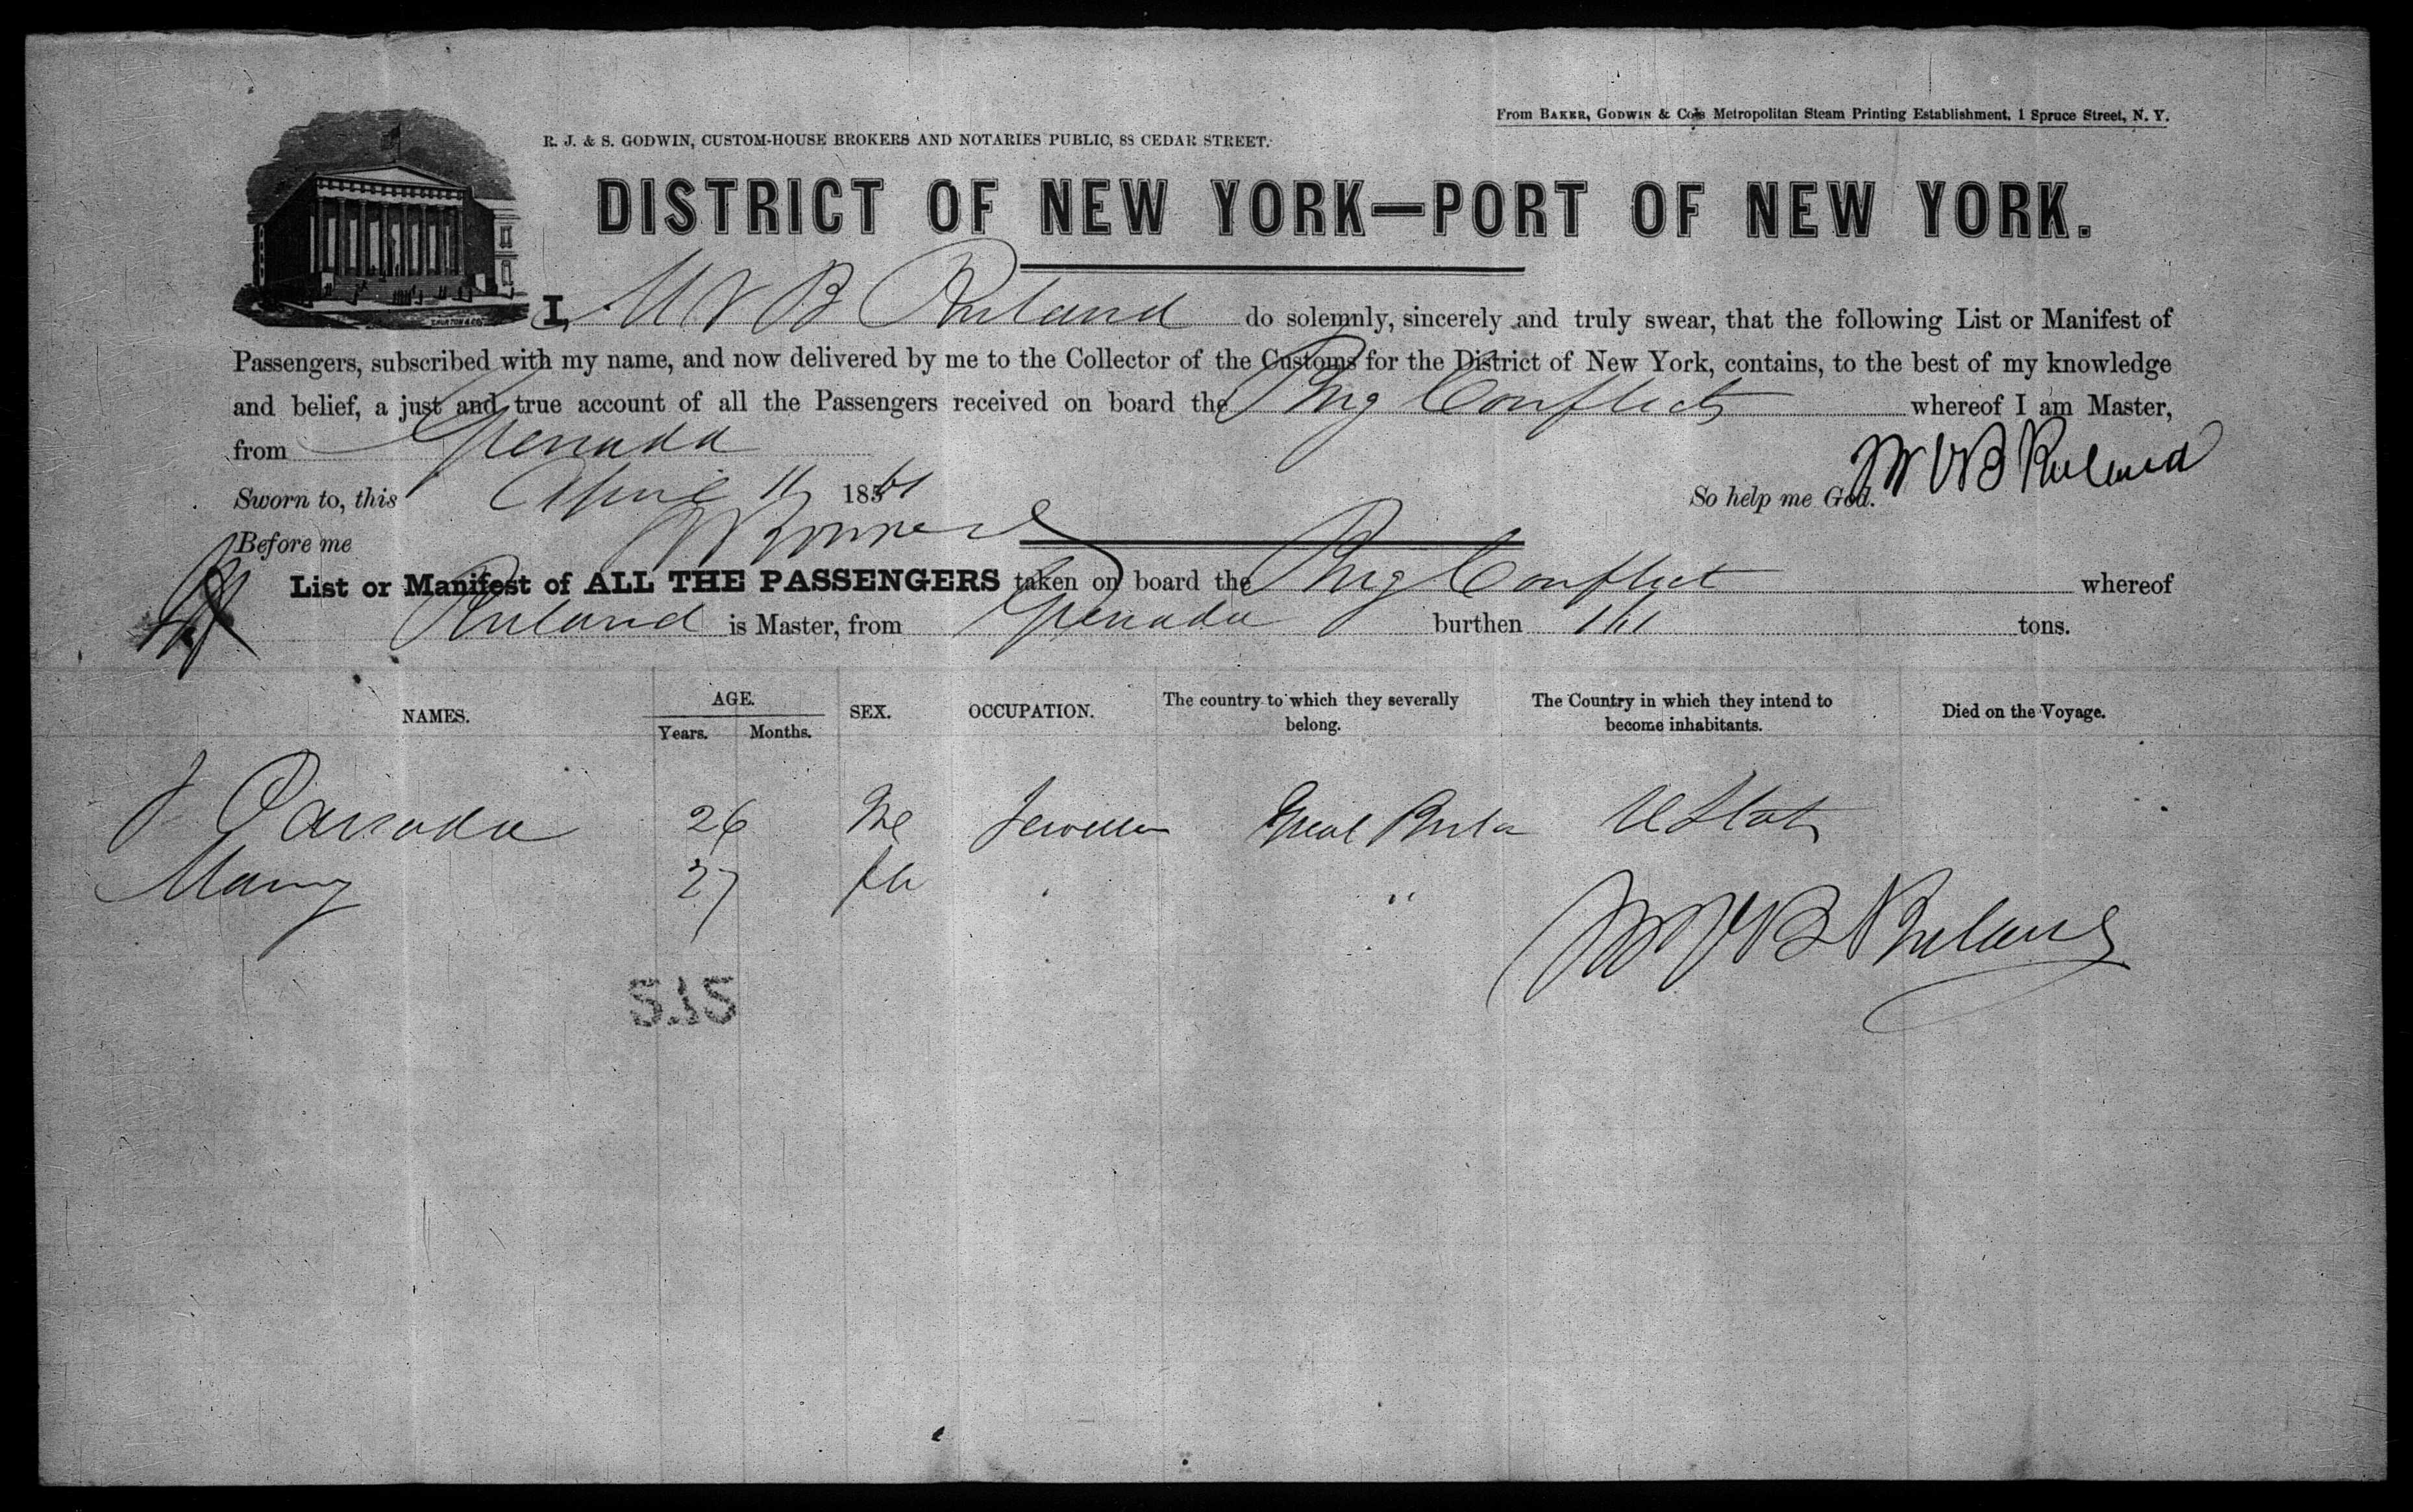 From BAKER, GODWIN & Co's Metropolitan Steam Printing Establishment, 1 Spruce Street, N. Y.
R. J. & S. GODWIN, CUSTOM-HOUSE BROKERS AND NOTARIES PUBLIC, 88 CEDAR STREET.
DISTRICT OF NEW YORK—PORT OF NEW YORK.
I, M V B Ruland do solemnly, sincerely and truly swear, that the following List or Manifest of
Passengers, subscribed with my name, and now delivered by me to the Collector of the Customs for the District of New York, contains, to the best of my knowledge
and belief, a just and true account of all the Passengers received on board the Brig Conflict whereof I am Master,
from Grenada
Sworn to, this April 11 1861 So help me God. M V B Ruland
Before me
List or Manifest of ALL THE PASSENGERS taken on board the Brig Conflict whereof
Ruland is Master, from Grenada burthen tons.
NAMES. AGE. SEX. OCCUPATION. The country to which they severally belong. The Country in which they intend to become inhabitants. Died on the Voyage.
Years. Months.
26 Me Jeweller Great Brita U State
Mary 27 " 
M V B Ruland